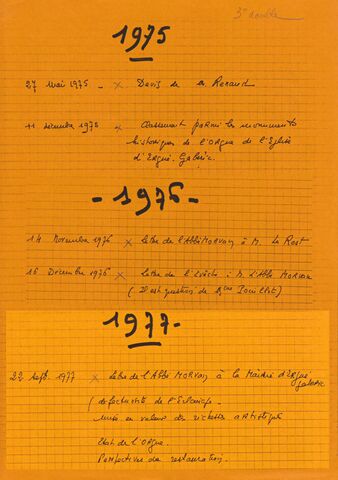 3e double
1975
27 Mai 1975 - x Devis de M. Renaud
11 décembre 1975 x Classement parmi les monuments
historiques de l'orgue de l'Eglise
d'Ergué-Gabéric.
- 1976 -
14 Novembre 1976 x Lettre de l'Abbé MORVAN à M. Le Rest
16 Décembre 1976 x Lettre de l'Evêché à M. L'Abbé MORVAN
( Il est question de
- 1977 -
22 Sept. 1977 x Lettre de l'Abbé MORVAN à la Mairie d'Ergué
Gabéric
( défectuosité de l'éclairage
mise en valeur des richesses artistiques
Etat de l'Orgue.
Perspectives de restauration.